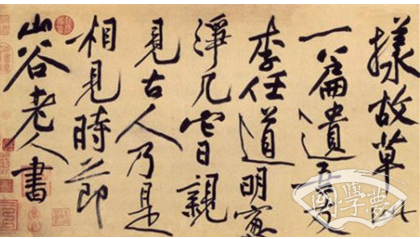 樣故草此
一篇遺吾友
李任道明窓
淨几它日親
見古人乃是
相見時節
山谷老人書
國學夢